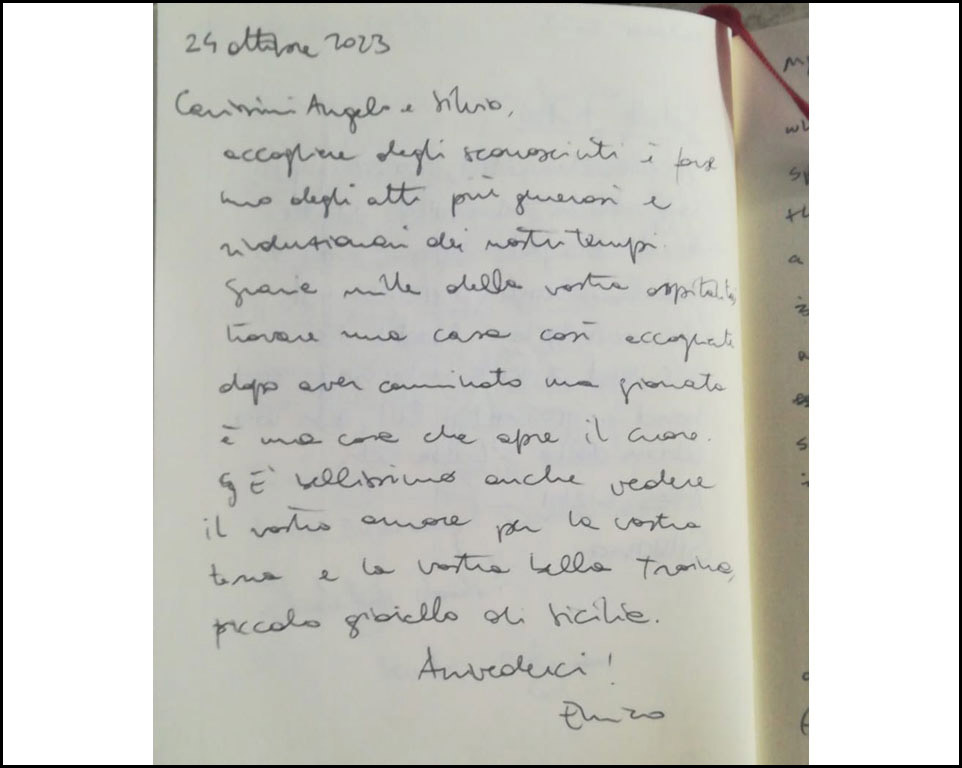 24 ottobre 2023
Carissimi Angelo e Silvio,
accogliere degli sconosciuti è forse
uno degli atti più generosi e
rivoluzionari dei nostri tempi.
Grazie mille della vostra ospitalità
trovare una casa così accogliente
dopo aver camminato una giornata
è una cosa che apre il cuore.
È bellissimo anche vedere
il vostro amore per la vostra
terra e la vostra bella Troina,
piccolo gioiello di Sicilia.
Arrivederci!